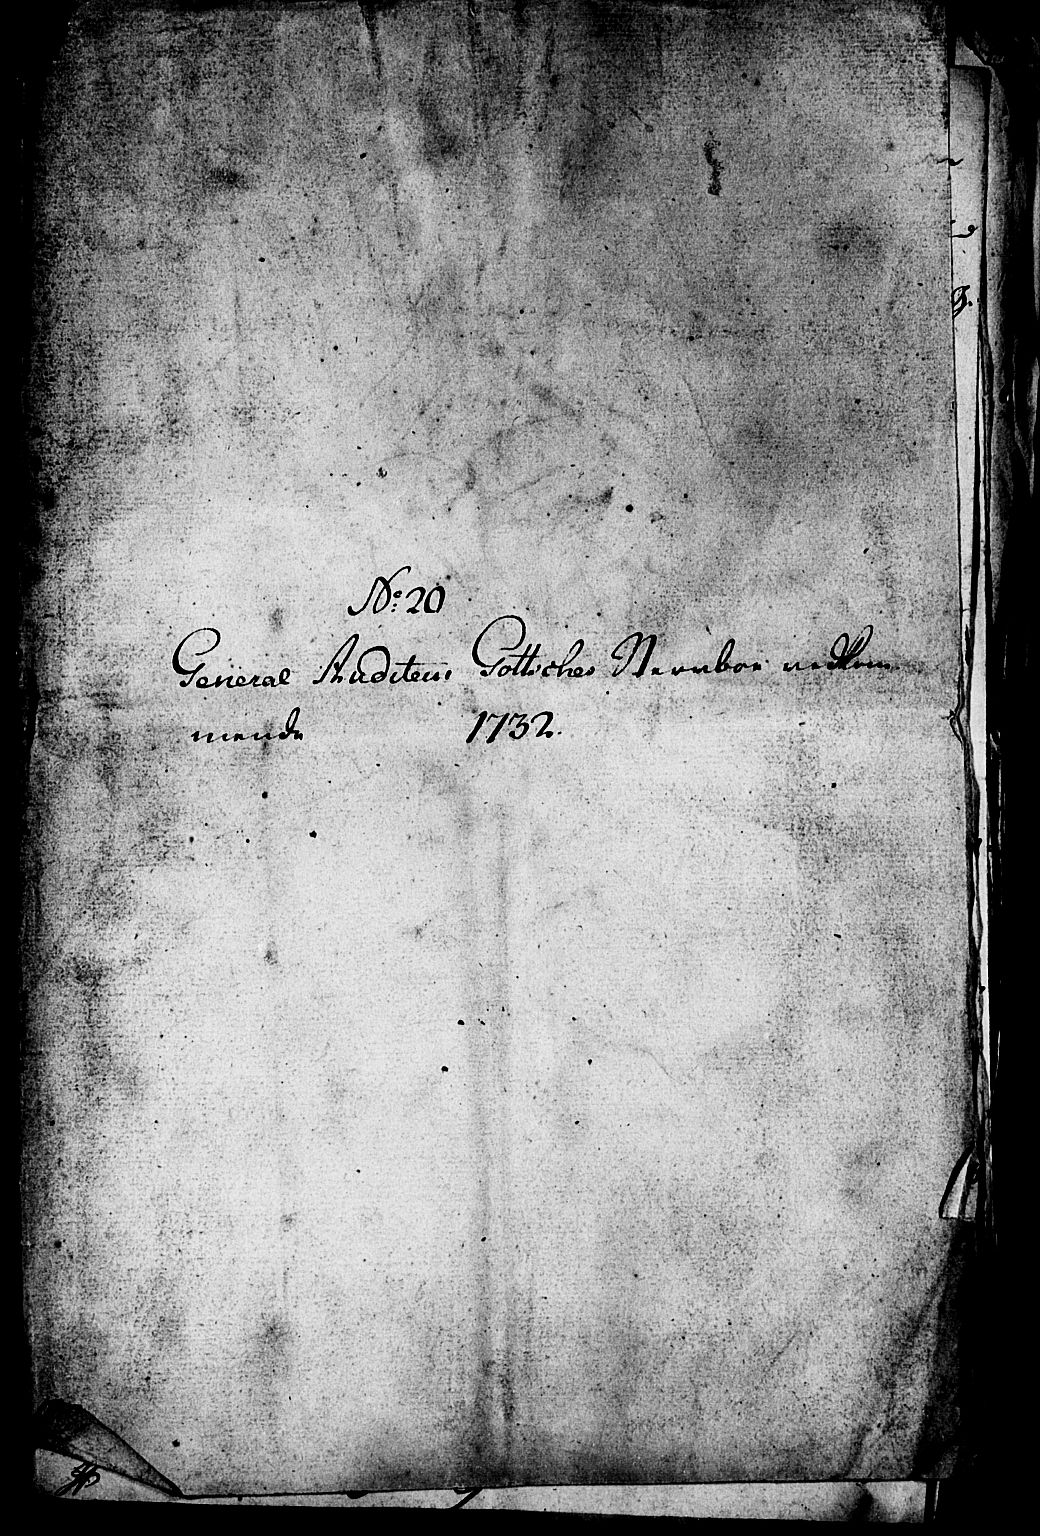 No: 20
General Auditeur Gottsches Sterboe vedkom
mende 1732.